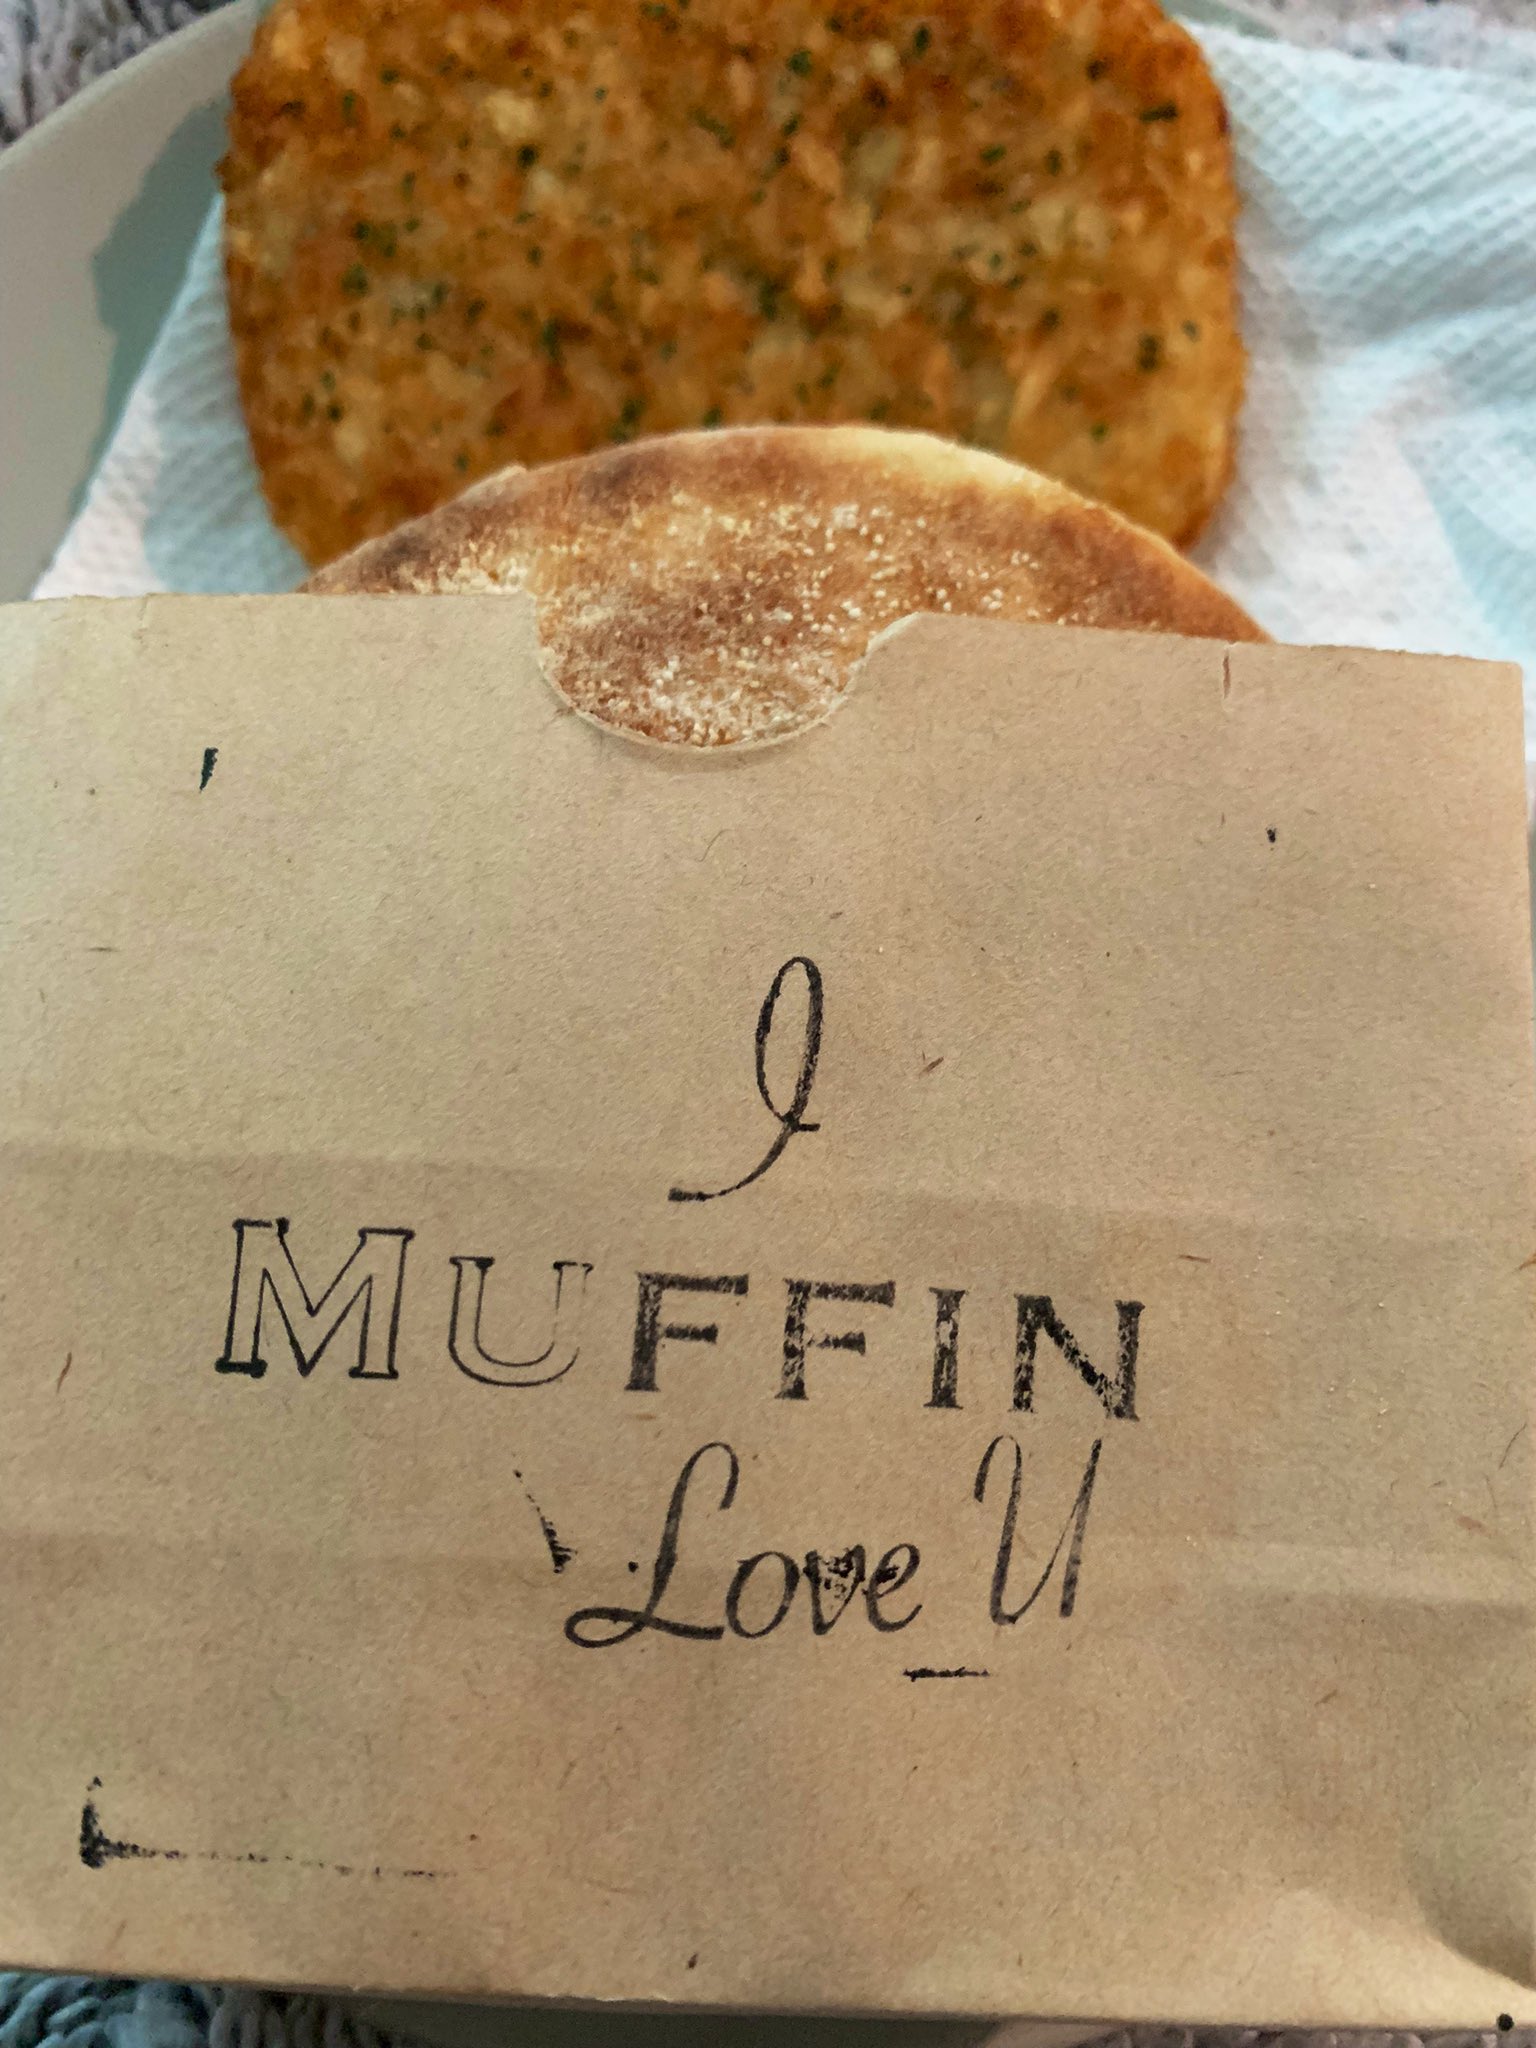 I
MUFFIN
Love U